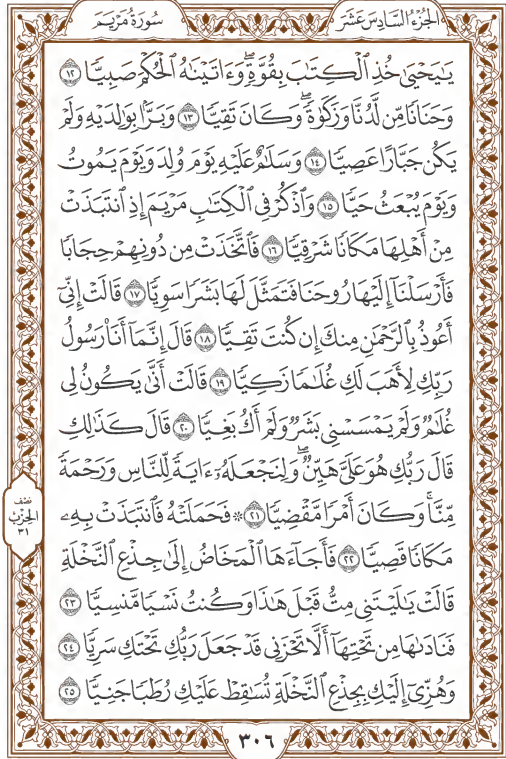 الجزء السادس عشر
سورة مريم
يَٰيَحْيَىٰ خُذِ ٱلْكِتَٰبَ بِقُوَّةٖۖ وَءَاتَيْنَٰهُ ٱلْحُكْمَ صَبِيّٗا ١٢
وَحَنَانٗا مِّن لَّدُنَّا وَزَكَوٰةٗۖ وَكَانَ تَقِيّٗا ١٣ وَبَرَّۢا بِوَٰلِدَيْهِ وَلَمْ
يَكُن جَبَّارًا عَصِيّٗا ١٤ وَسَلَٰمٌ عَلَيْهِ يَوْمَ وُلِدَ وَيَوْمَ يَمُوتُ
وَيَوْمَ يُبْعَثُ حَيّٗا ١٥ وَٱذْكُرْ فِي ٱلْكِتَٰبِ مَرْيَمَ إِذِ ٱنتَبَذَتْ
مِنْ أَهْلِهَا مَكَانٗا شَرْقِيّٗا ١٦ فَٱتَّخَذَتْ مِن دُونِهِمْ حِجَابٗا
فَأَرْسَلْنَآ إِلَيْهَا رُوحَنَا فَتَمَثَّلَ لَهَا بَشَرٗا سَوِيّٗا ١٧ قَالَتْ إِنِّيٓ
أَعُوذُ بِٱلرَّحْمَٰنِ مِنكَ إِن كُنتَ تَقِيّٗا ١٨ قَالَ إِنَّمَآ أَنَا۠ رَسُولُ
رَبِّكِ لِأَهَبَ لَكِ غُلَٰمٗا زَكِيّٗا ١٩ قَالَتْ أَنَّىٰ يَكُونُ لِي
غُلَٰمٞ وَلَمْ يَمْسَسْنِي بَشَرٞ وَلَمْ أَكُ بَغِيّٗا ٢٠ قَالَ كَذَٰلِكِ
قَالَ رَبُّكِ هُوَ عَلَيَّ هَيِّنٞۖ وَلِنَجْعَلَهُۥٓ ءَايَةٗ لِّلنَّاسِ وَرَحْمَةٗ
مِّنَّاۚ وَكَانَ أَمْرٗا مَّقْضِيّٗا ٢١ ۞ فَحَمَلَتْهُ فَٱنتَبَذَتْ بِهِۦ
مَكَانٗا قَصِيّٗا ٢٢ فَأَجَآءَهَا ٱلْمَخَاضُ إِلَىٰ جِذْعِ ٱلنَّخْلَةِ
قَالَتْ يَٰلَيْتَنِي مِتُّ قَبْلَ هَٰذَا وَكُنتُ نَسْيٗا مَّنسِيّٗا ٢٣
فَنَادَىٰهَا مِن تَحْتِهَآ أَلَّا تَحْزَنِي قَدْ جَعَلَ رَبُّكِ تَحْتَكِ سَرِيّٗا ٢٤
وَهُزِّيٓ إِلَيْكِ بِجِذْعِ ٱلنَّخْلَةِ تُسَٰقِطْ عَلَيْكِ رُطَبٗا جَنِيّٗا ٢٥
نصف
الحزب
٣١
٣٠٦